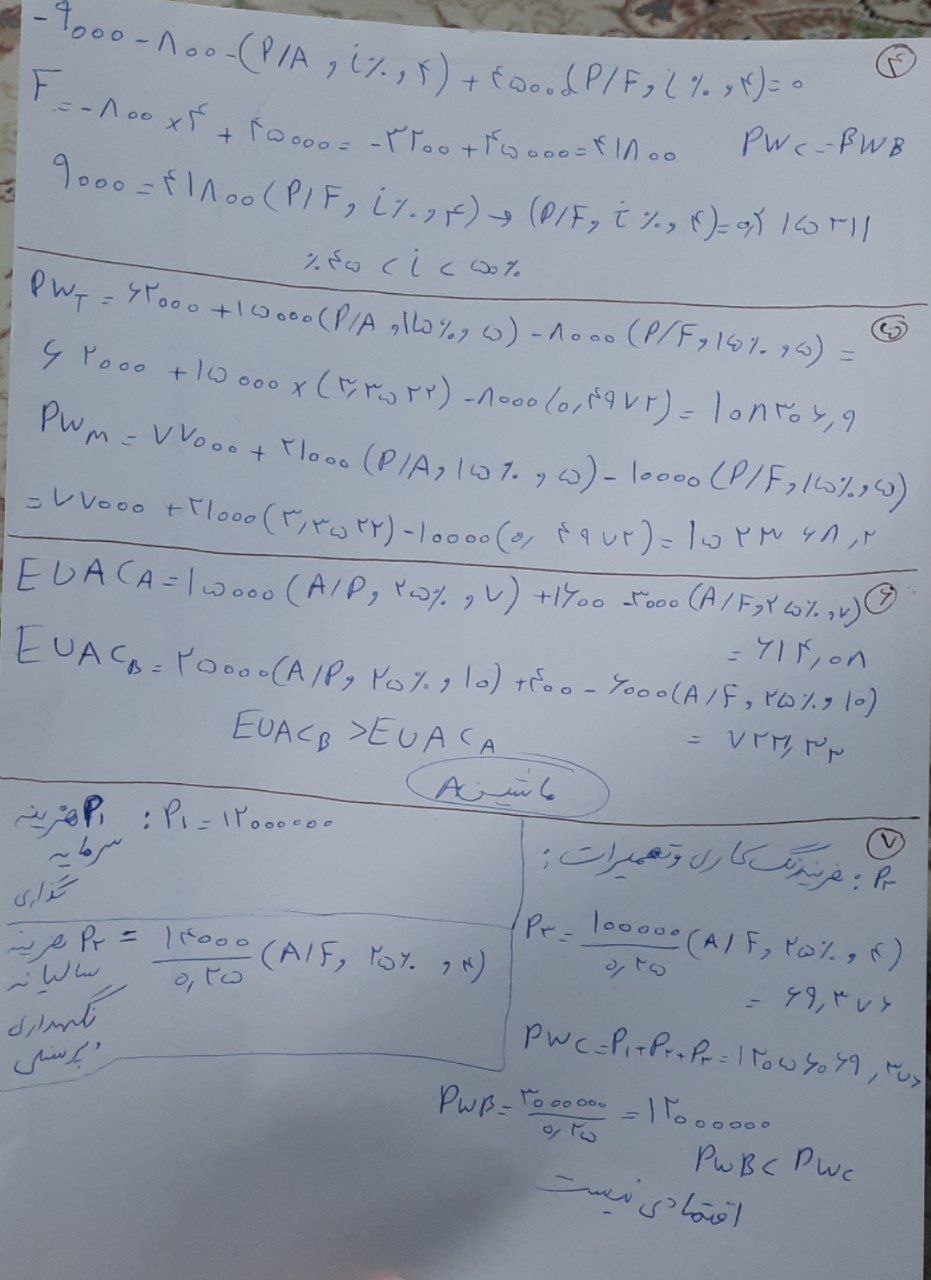 ④
-۹۰۰۰-۸۰۰-(P/A , i% , ۴) + ۴۵۰۰۰(P/F, i% , ۴)=۰
F=-۸۰۰ x۴ + ۴۵۰۰۰= -۳۲۰۰+۴۵۰۰۰=۴۱۸۰۰ PWC=PWB
۹۰۰۰=۴۱۸۰۰(P/F, i%, ۴) → (P/F, i%, ۴)=۰,۲۱۵۳۱۱
%۴۵ < i < ۵۰%
⑤
PWT = ۶۲۰۰۰ +۱۵۰۰۰(P/A ,۱۵%, ۵) -۸۰۰۰ (P/F, ۱۵% , ۵) =
۶۲۰۰۰ +۱۵۰۰۰ x (۳,۳۵۲۲) -۸۰۰۰(۰,۴۹۷۲)= ۱۰۸۳۰۶,۹
PWM = ۷۷۰۰۰+ ۲۱۰۰۰ (P/A, ۱۵% , ۵) - ۱۰۰۰۰ (P/F, ۱۵%, ۵)
= ۷۷۰۰۰ +۲۱۰۰۰(۳,۳۵۲۲) -۱۰۰۰۰(۰,۴۹۷۲)= ۱۵۲۳۶۸,۲
⑥
EUACA=۱۰۰۰۰ (A/P, ۲۵% , ۷) +۱۶۰۰ -۳۰۰۰ (A/F, ۲۵%, ۷)
= ۶۱۴,۰۸
EUACB= ۲۵۰۰۰(A/P, ۲۵% , ۱۰) +۴۰۰ - ۶۰۰۰(A/F, ۲۵%, ۱۰)
= ۷۲۳,۳۲
EUACB >EUACA
ماشین A
⑦
P۱ هزینه : P۱= ۱۲۰۰۰۰۰۰
سرمایه
گذاری
P۲ هزینه = ۱۴۰۰۰/۰,۲۵ (A/F, ۲۵% , ۴)
سالیانه
نگهداری
و بررسی
P۳ : هزینه رنگ کاری و تعمیرات :
P۳= ۱۰۰۰۰۰/۰,۲۵ (A/F, ۲۵% , ۴)
= ۶۹,۳۷۶
PWC=P۱+P۲+P۳= ۱۲۰۵۶۰۶۹,۳۷۶
PWB= ۳۰۰۰۰۰۰/۰,۲۵ = ۱۲۰۰۰۰۰۰
PWB< PWC
اقتصادی نیست